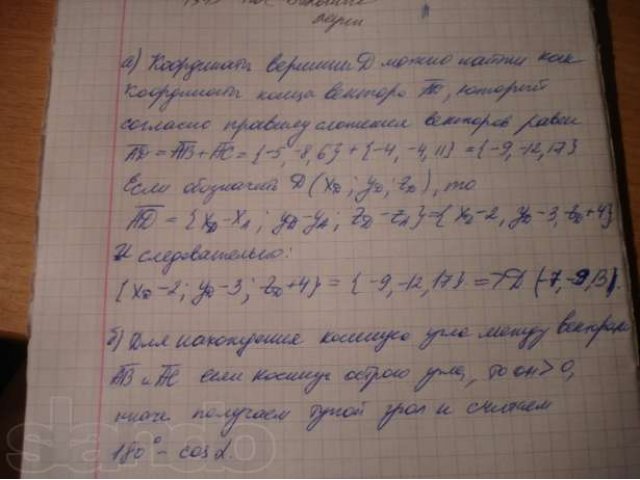 а) Координаты вершины D можно найти как
координаты конца вектора AD, который
согласно правилу сложения векторов равен
AD = AB + AC = {-5, -8, 6} + {-4, -4, 11} = {-9, -12, 17}
Если обозначить D (xD; yD; zD), то
AD = {xD-xA; yD-yA; zD-zA} = {xD-2, yD-3, zD+4}
И следовательно:
{xD-2; yD-3; zD+4} = {-9, -12, 17} => D (-7, -9, 13).
б) Для нахождения косинуса угла между векторами
AB и AC если косинус острого угла, то он > 0,
иначе получаем тупой угол и считаем
180° - cos α.
slando